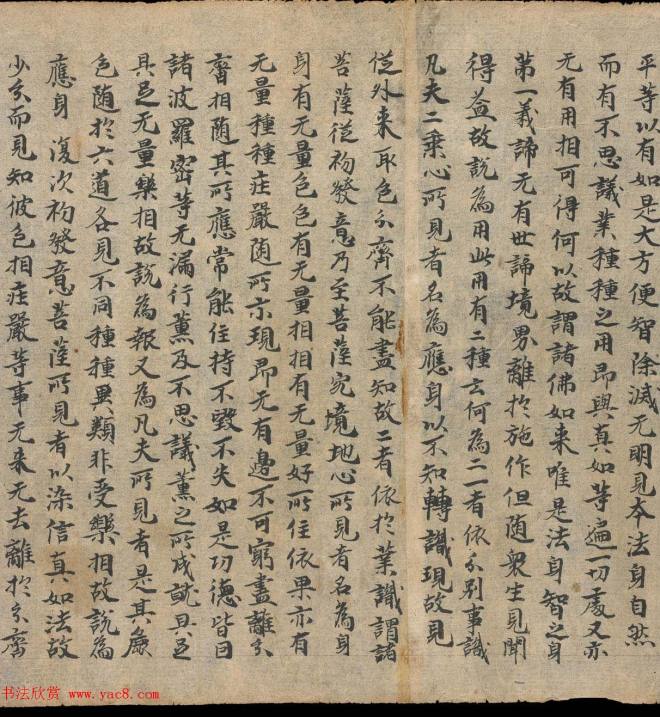 平等以有如是大方便智除滅无明見本法身自然
而有不思議業種種之用即與真如等遍一切處又亦
无有用相可得何以故謂諸佛如来唯是法身智之身
第一義諦无有世諦境界離於施作但随衆生見聞
得益故說為用此用有二種云何為二一者依分別事識
凡夫二乘心所見者名為應身以不知轉識現故見
従外来取色分齊不能盡知故二者依於業識謂諸
菩薩従初發意乃至菩薩究境地心所見者名為身
身有无量色色有无量相相有无量好所住依果亦有
无量種種荘嚴随所示現即无有邊不可窮盡離分
齊相随其所應常能住持不毀不失如是功德皆曰
諸波羅密等无漏行薰及不思議薰之所成就具足
具足无量樂相故說為報又為凡夫所見者是其麁
色随於六道各見不同種種異類非受樂相故說為
應身 復次初發意菩薩所見者以染信真如法故
少分而見知彼色相荘嚴等事无来无去離於分齊
书法欣赏 www.yac8.com